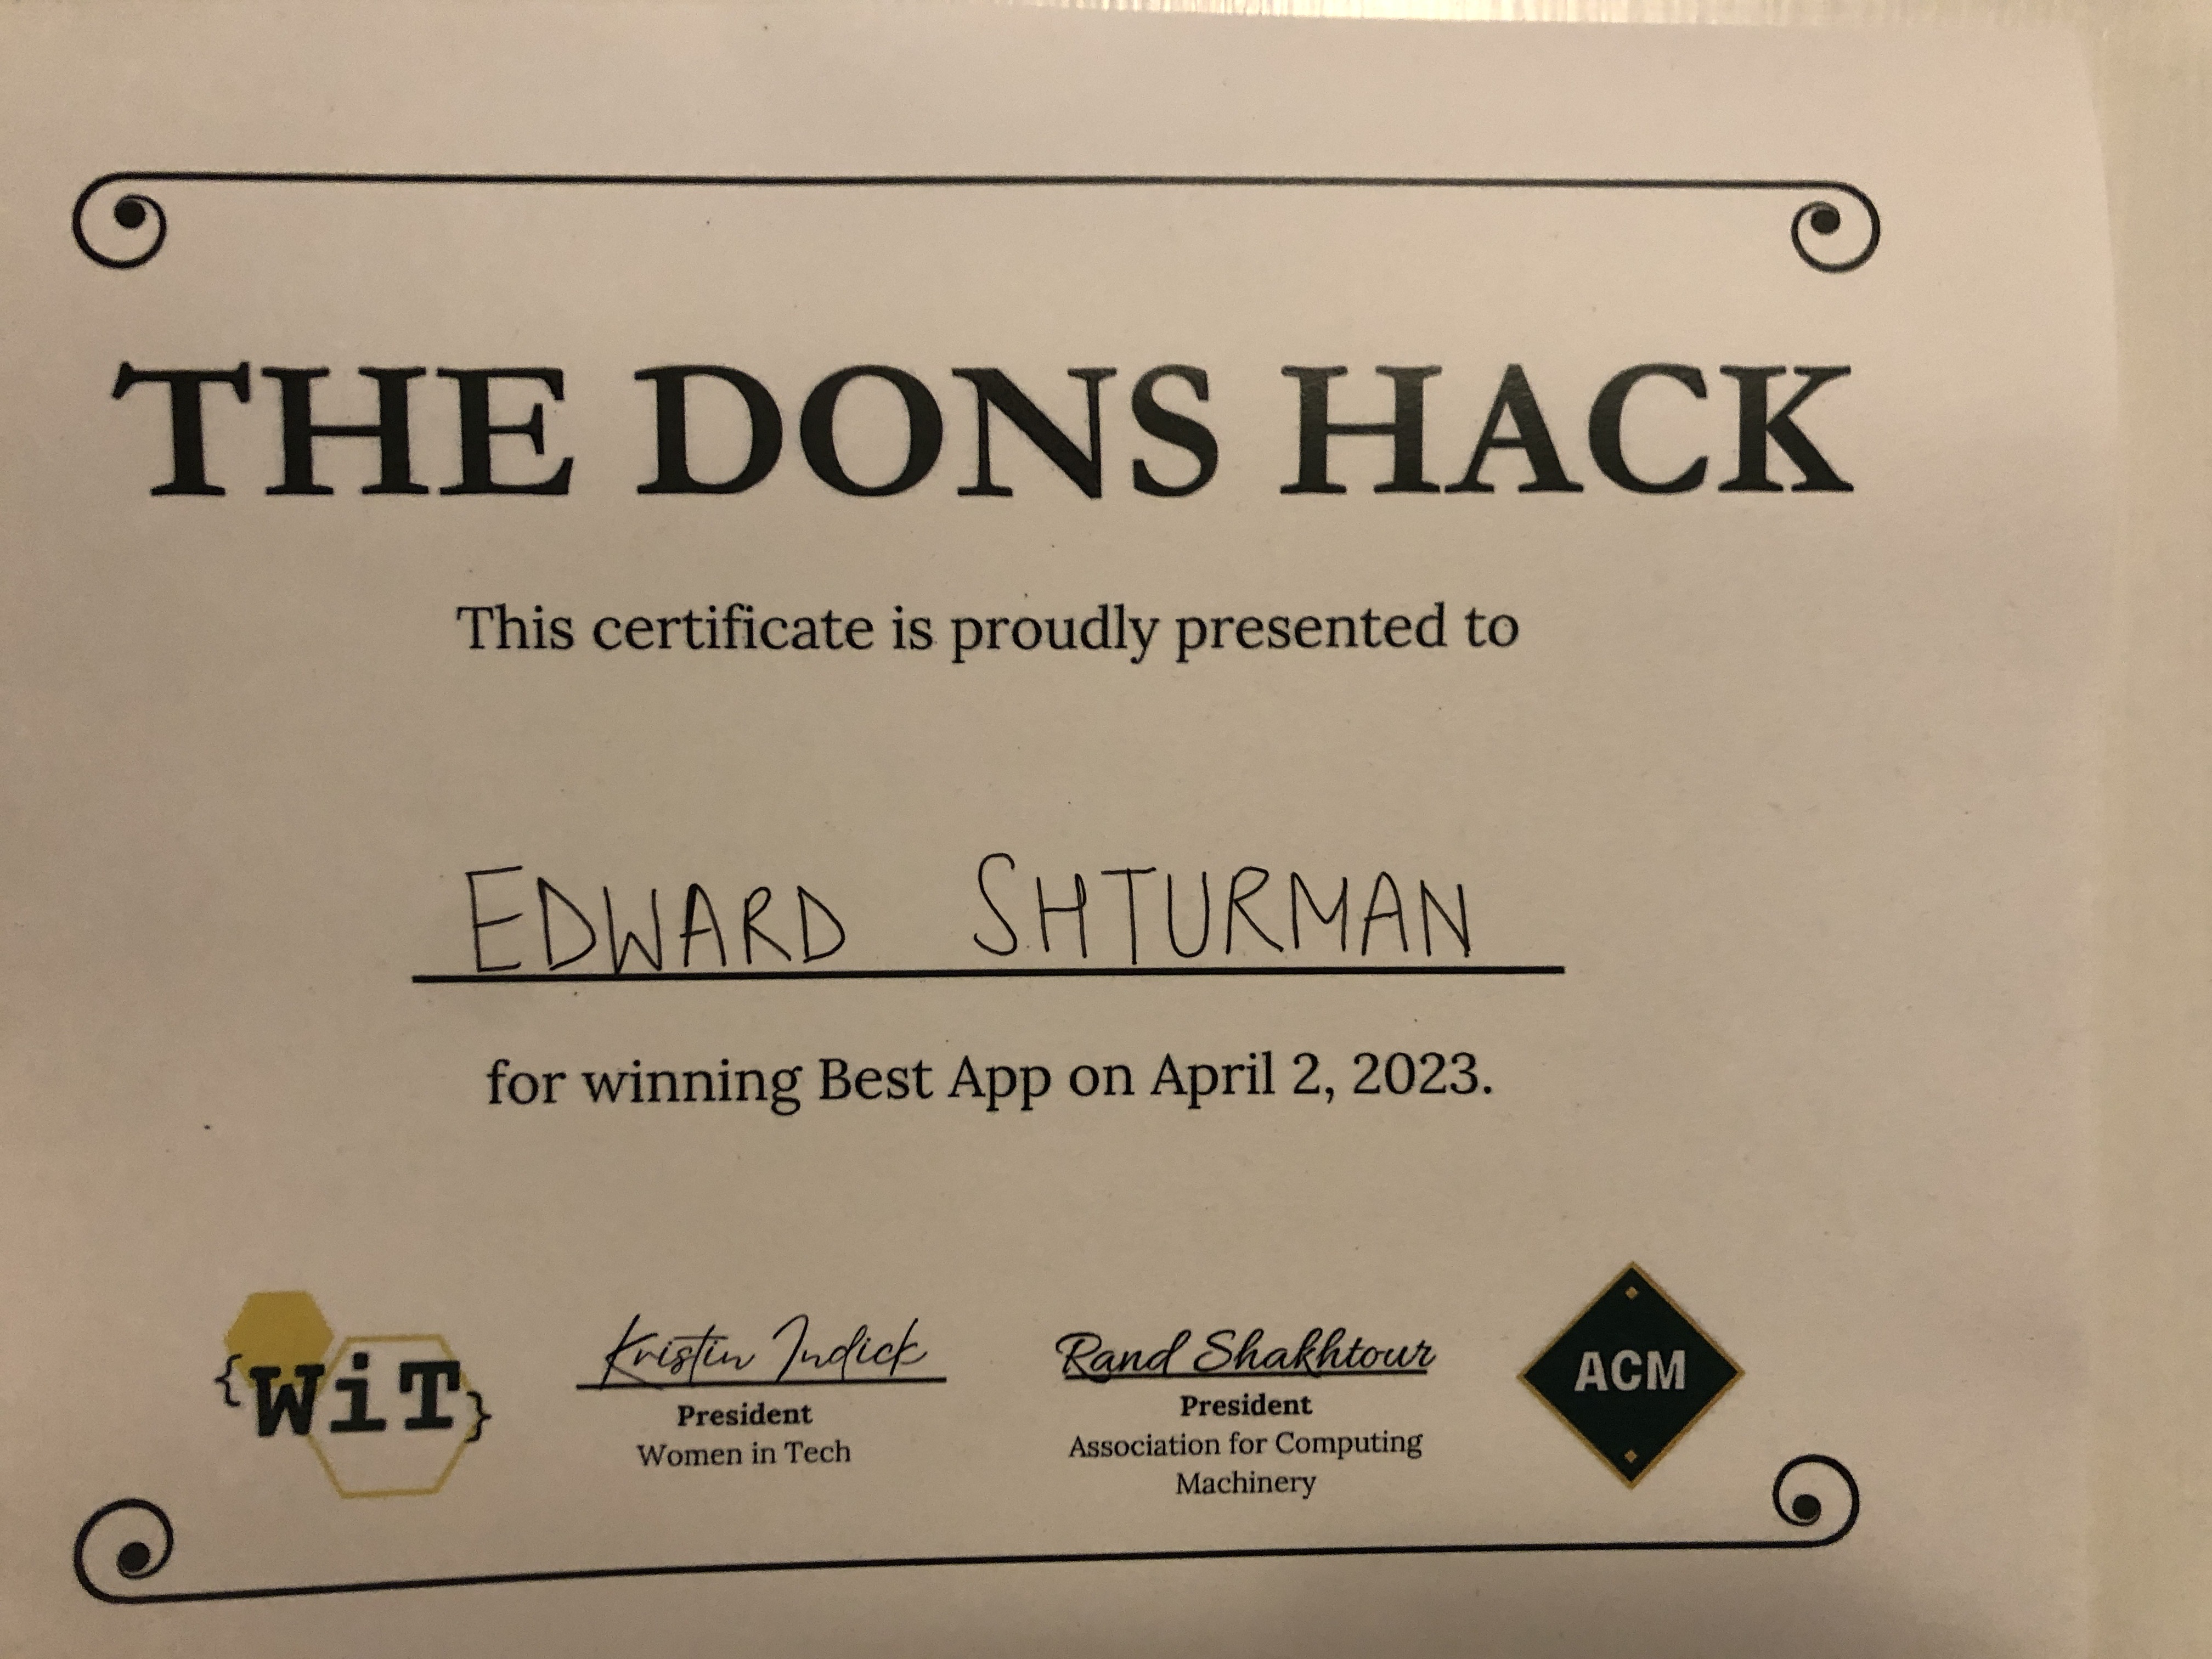 THE DONS HACK
This certificate is proudly presented to
EDWARD SHTURMAN
for winning Best App on April 2, 2023.
{WiT}
Kristin Indick
President
Women in Tech
Rand Shakhtour
President
Association for Computing
Machinery
ACM